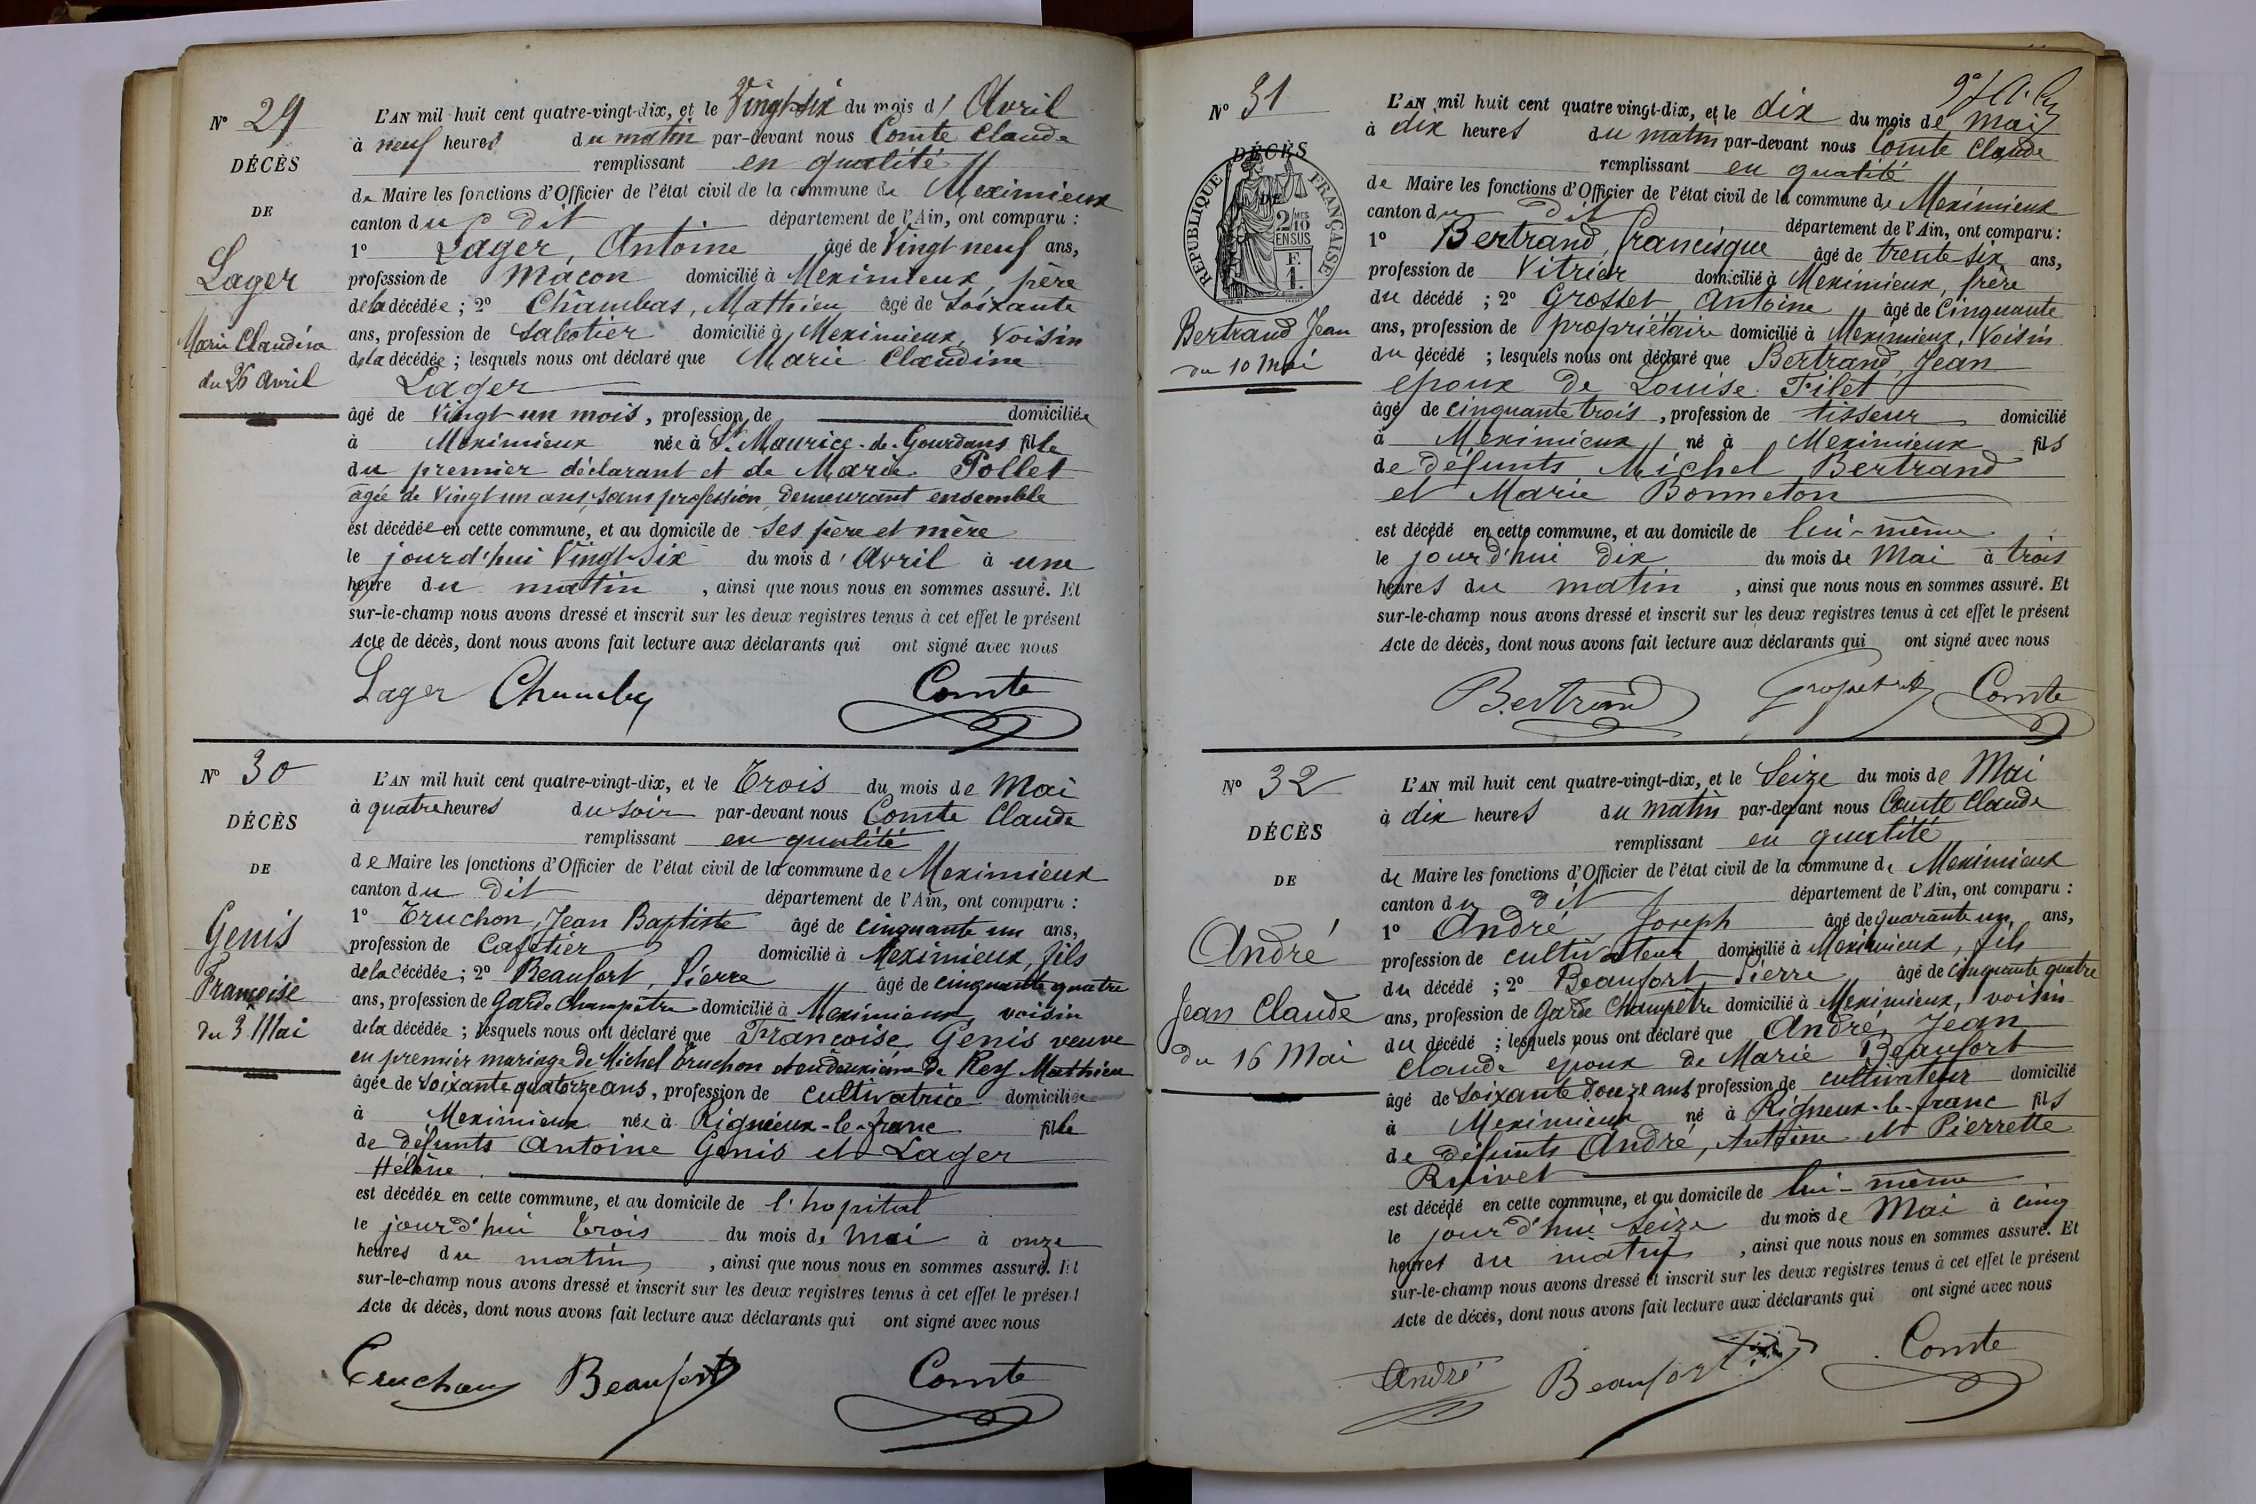 Nº 29
DÉCÈS
DE
Lager
Marie Claudine
du 26 Avril
L'AN mil huit cent quatre-vingt-dix, et le Vingt-six du mois d'Avril
à neuf heures du matin par-devant nous Comte Claude
remplissant en qualité
de Maire les fonctions d'Officier de l'état civil de la commune de Meximieux
canton du dit département de l'Ain, ont comparu :
1º Lager, Antoine âgé de Vingt neuf ans,
profession de Macon domicilié à Meximieux, père
de la décédée ; 2º Chambas, Mathieu âgé de Soixante
ans, profession de Sabotier domicilié à Meximieux, Voisin
de la décédée ; lesquels nous ont déclaré que Marie Claudine
Lager
âgé de Vingt un mois, profession de domiciliée
à Meximieux née à St Maurice-de-Gourdans fille
du premier déclarant et de Marie Pollet
agée de Vingt un ans, sans profession, demeurant ensemble
est décédée en cette commune, et au domicile de ses père et mère
le jourd'hui Vingt-Six du mois d'Avril à une
heure du matin, ainsi que nous nous en sommes assuré. Et
sur-le-champ nous avons dressé et inscrit sur les deux registres tenus à cet effet le présent
Acte de décès, dont nous avons fait lecture aux déclarants qui ont signé avec nous
Lager Comte
Nº 30
DÉCÈS
DE
Genis
Françoise
du 3 Mai
L'AN mil huit cent quatre-vingt-dix, et le Trois du mois de Mai
à quatre heures du soir par-devant nous Comte Claude
remplissant en qualité
de Maire les fonctions d'Officier de l'état civil de la commune de Meximieux
canton du dit département de l'Ain, ont comparu :
1º Truchon, Jean Baptiste âgé de cinquante un ans,
profession de Cafetier domicilié à Meximieux, fils
de la décédée ; 2º Beaufort, Pierre âgé de cinquante quatre
ans, profession de Garde Champêtre domicilié à Meximieux, voisin
de la décédée ; lesquels nous ont déclaré que Françoise Genis veuve
en premier mariage de Michel Truchon et en deuxième de Rey Mathieu
âgée de Soixante quatorze ans, profession de cultivatrice domiciliée
à Meximieux née à Rignieux-le-franc fille
de défunts Antoine Genis et Lager
Hélène
est décédée en cette commune, et au domicile de l'hopital
le jourd'hui trois du mois de Mai à onze
heures du matin, ainsi que nous nous en sommes assuré. Et
sur-le-champ nous avons dressé et inscrit sur les deux registres tenus à cet effet le présent
Acte de décès, dont nous avons fait lecture aux déclarants qui ont signé avec nous
Truchon Beaufort Comte
Nº 31
DÉCÈS
DE
RÉPUBLIQUE FRANÇAISE
2/10MES
EN SUS
F.
1.
Bertrand Jean
du 10 Mai
L'AN mil huit cent quatre vingt-dix, et le dix du mois de Mai
à dix heures du matin par-devant nous Comte Claude
remplissant en qualité
de Maire les fonctions d'Officier de l'état civil de la commune de Meximieux
canton du dit département de l'Ain, ont comparu :
1º Bertrand, francisque âgé de trente six ans,
profession de Vitrier domicilié à Meximieux, frère
du décédé ; 2º Grosset, Antoine âgé de cinquante
ans, profession de propriétaire domicilié à Meximieux, Voisin
du décédé ; lesquels nous ont déclaré que Bertrand, Jean
epoux de Louise Filet
âgé de cinquante trois, profession de tisseur domicilié
à Meximieux né à Meximieux fils
de défunts Michel Bertrand
et Marie Bonneton
est décédé en cette commune, et au domicile de lui-même
le jourd'hui dix du mois de Mai à trois
heures du matin, ainsi que nous nous en sommes assuré. Et
sur-le-champ nous avons dressé et inscrit sur les deux registres tenus à cet effet le présent
Acte de décès, dont nous avons fait lecture aux déclarants qui ont signé avec nous
Bertrand Comte
Nº 32
DÉCÈS
DE
André
Jean Claude
du 16 Mai
L'AN mil huit cent quatre-vingt-dix, et le Seize du mois de Mai
à dix heures du matin par-devant nous Comte Claude
remplissant en qualité
de Maire les fonctions d'Officier de l'état civil de la commune de Meximieux
canton du dit département de l'Ain, ont comparu :
1º André, Joseph âgé de quarante un ans,
profession de cultivateur domicilié à Meximieux, fils
du décédé ; 2º Beaufort Pierre âgé de cinquante quatre
ans, profession de Garde Champêtre domicilié à Meximieux, voisin
du décédé ; lesquels nous ont déclaré que André, Jean
Claude epoux de Marie Beaufort
âgé de Soixante douze ans profession de cultivateur domicilié
à Meximieux né à Rigneux-le-franc fils
de défunts André, Antoine et Pierrette
Ruivet
est décédé en cette commune, et au domicile de lui-même
le jourd'hui Seize du mois de Mai à cinq
heures du matin, ainsi que nous nous en sommes assuré. Et
sur-le-champ nous avons dressé et inscrit sur les deux registres tenus à cet effet le présent
Acte de décès, dont nous avons fait lecture aux déclarants qui ont signé avec nous
André Beaufort Comte